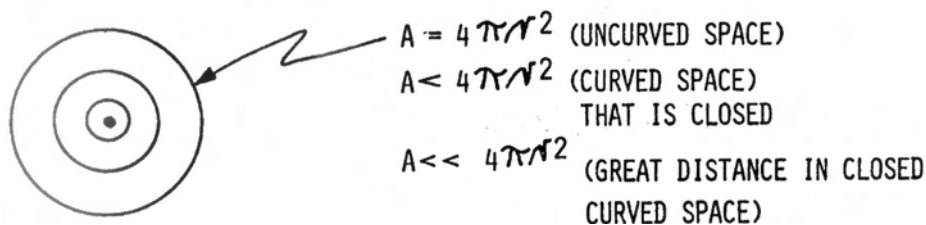 A = 4πr² (UNCURVED SPACE)
A < 4πr² (CURVED SPACE)
THAT IS CLOSED
A << 4πr² (GREAT DISTANCE IN CLOSED
CURVED SPACE)